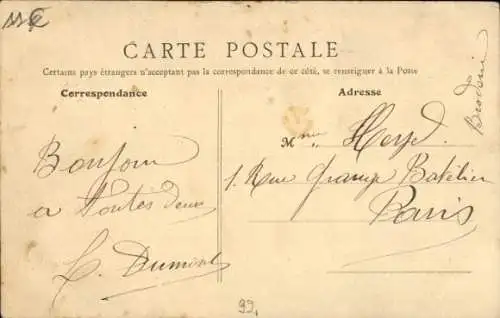 CARTE POSTALE
Certains pays étrangers n'acceptant pas la correspondance de ce côté, se renseigner à la Poste
Correspondance
Adresse
Bonjour
a toutes deux
L. Dumont
Mme
1. Rue Grange Batélier
Paris
99,